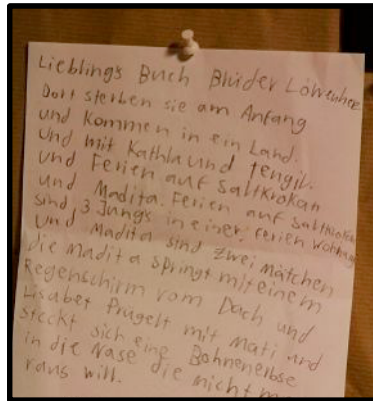 Lieblings Buch Brüder Löwenher
Dort sterben sie am Anfang
und kommen in ein Land.
und mit Kathla und Tengil.
und Ferien auf Saltkrokan
und Madita. Ferien auf Saltkrokan
sind 3 Jungs in einer. Ferien Wohnung
und Madita sind zwei mätchen
die madita springt mit einem
Regenschirm vom Dach und
Lisabet Prügelt mit Mati und
steckt sich eine Bohnenerbse
in die Nase die nicht m
raus will.